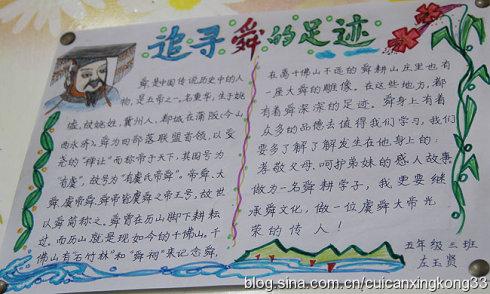 追寻舜的足迹
舜是中国传说历史中的人
物,是五帝之一,名重华,生于姚
墟,故姚姓,冀州人,都城在蒲阪(今山
西永济)。舜为四部落联盟首领,以受
尧的"禅让"而称帝于天下,其国号为
"有虞",故号为"有虞氏帝舜"。帝舜、大
舜、虞帝舜、舜帝皆虞舜之帝王号,故世
以舜简称之。舜曾在历山脚下耕耘
过。而历山就是现如今的千佛山。千
佛山有石竹林"和"舜祠"来记念舜,
在离千佛山不远的舜耕山庄里也有
一座大舜的雕像。在这些地方,都
有着舜深深的足迹。舜身上有着
众多的品德去值得我们学习,我们
要多了解了解发生在他身上的:
孝敬父母、呵护弟妹的感人故事
做为一名舜耕学子,我更要继
承舜文化,做一位虞舜大帝光
荣的传人!
五年级三班
左玉贤
blog.sina.com.cn/cuicanxingkong33